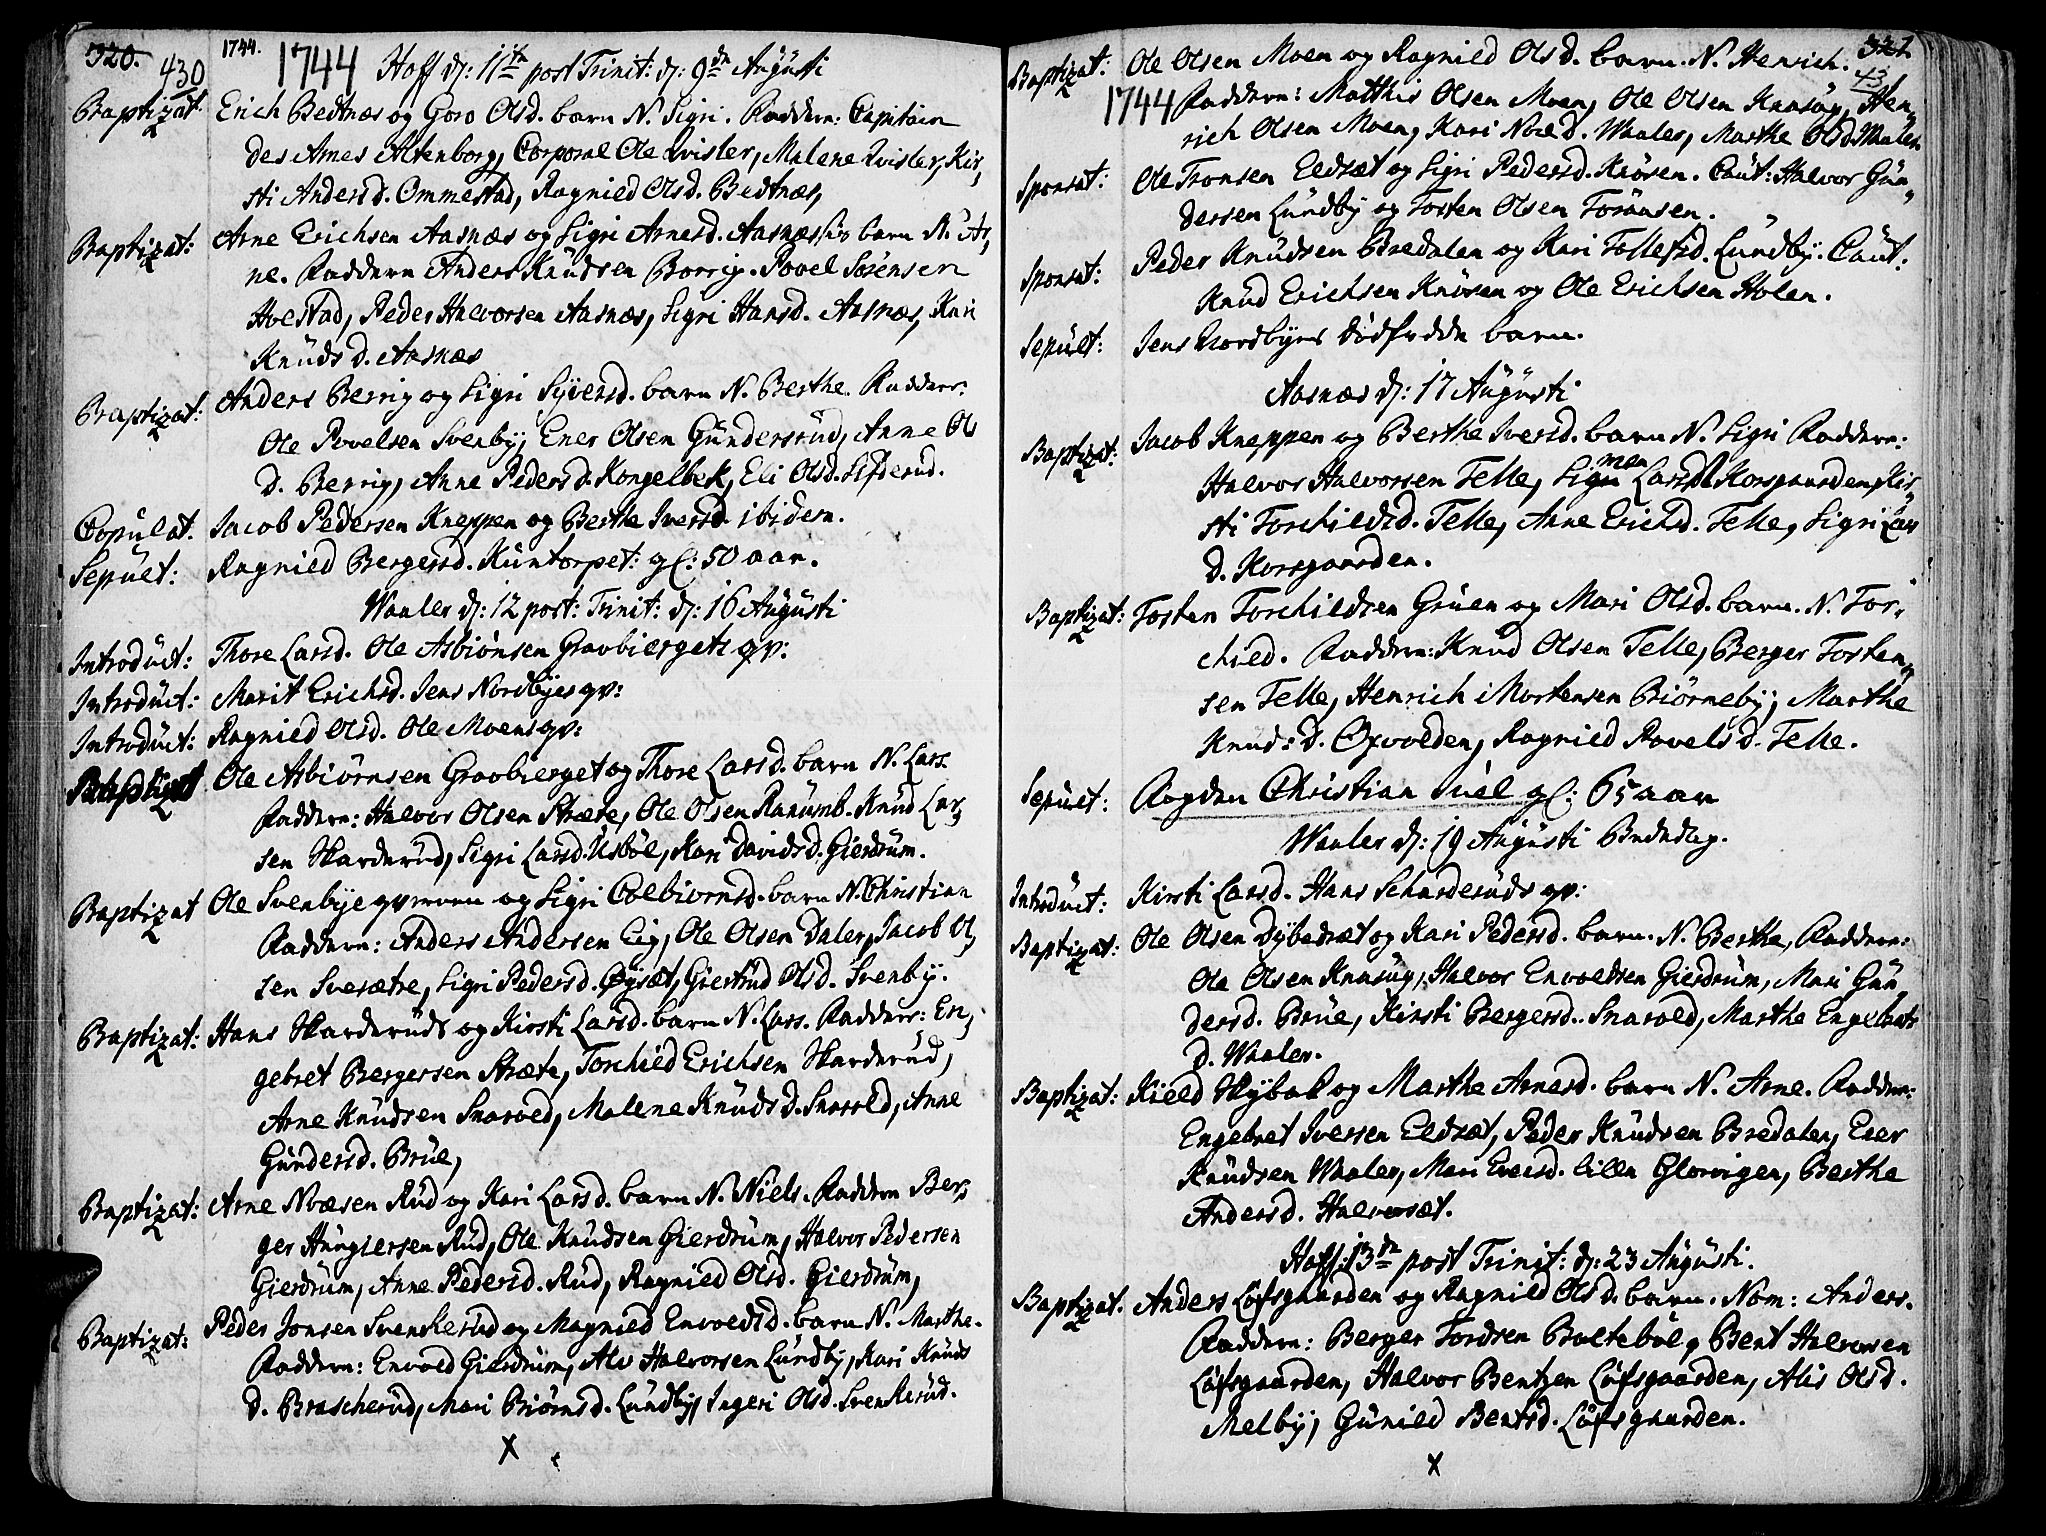 320.
430
1744.
1744 Hoff d: 11te post Trinit: d: 9de Augusti
Baptizat. Erich Bedtnæs og Goro Olsd. barn N. Sigri. Faddere: Capitain
des Arnes Altenborg, Corporal Ole Qvisler, Malene Qvisler, Kir,
sti Andersd. Ommestad, Ragnild Olsd. Bedtnæs,
Baptizat: Arne Erichsen Aasnæs og Sigri Arnesd. Aasnæs barn N. Ar,
ne. Faddere Anders Knudsen Berrig, Povel Sörensen
Hoelstad, Peder Halvorsen Aasnæs, Sigri Hansd. Aasnæs, Kari
Knudsd. Aasnæs
Baptizat: Anders Berrig og Sigri Syversd. barn N. Berthe. Faddere:
Ole Povelsen Svenby, Ener Olsen Gundersrud, Anne Ols
d. Berrig, Anne Pedersd. Kongelbek, Eli Olsd. Sifderud.
Copulat. Jacob Pedersen Kneppen og Berthe Iversd. ibidem.
Sepult: Ragnild Bergersd. Kuntorpet: gl: 50 aar.
Waaler d: 12 post: Trinit: d: 16 Augusti
Introduct: Thore Larsd. Ole Asbiönsen Gravbiergets qv:
Introduct: Marit Erichsd. Jens Nordbyes qv:
Introduct: Ragnild Olsd. Ole Moens qv:
Baptizat Ole Asbiörnsen Gravbierget og Thore Larsd. barn N. Lars.
Faddere: Halvor Olsen Stræte, Ole Olsen Ranumb. Knud Lar,
sen Skarderud, Sigri Larsd. Usböl, Kari Davidsd. Gierdrum.
Baptizat Ole Svenbye qvernen og Sigri Colbiornsd. barn N. Christian
Faddere: Anders Andersen Eig, Ole Olsen Daler, Jacob Ol,
sen Sveræbre, Sigri Pedersd. Öysæt, Giertrud Olsd. Svenby.
Baptizat: Hans Skarderuds og Kirsti Larsd. barn N. Lars. Faddere: En,
gebret Bergersen Stræte, Torchild Erichsen Skarderud,
Arne Knudsen Snarold, Malene Knudsd. Snarold, Anne
Gundersd. Brue,
Baptizat: Arne Noæsen Rud og Kari Larsd. barn N. Niels. Faddere Ber,
ger Hungiersen Rud, Ole Knudsen Gierdrum, Halvor Pedersen
Gierdrum, Anne Pedersd. Rud, Ragnild Olsd. Gierdrum,
Baptizat: Peder Jonsen Svenskerud og Magnild Envoldsd. barn N. Marthe.
Faddere: Envold Gierdrum, Alv Halvorsen Lundby, Kari Knuds
d. Brascherud, Mari Briörnsd. Lundby, Ingeri Olsd. Svenskerud.
X
321
43
1744
Baptizat: Ole Olsen Moen og Ragnild Olsd. barn. N. Henrich.
Faddere: Matthis Olsen Moen, Ole Olsen Knasug, Hen,
rich Olsen Moen, Kari Noed. Waaler, Marthe Olsd. Waaler
Sponsat: Ole Tronsen Eldsæt og Sigri Pedersd. Knösen. Caut: Halvor Gun,
dersen Lundby og Tosten Olsen Toraasen.
Sponsat: Peder Knudsen Bredalen og Kari Tollefsd. Lundby. Caut:
Knud Erichsen Knösen og Ole Erichsen Holen.
Sepult: Jens Nordbyes dödfödde barn.
Aasnæs d: 17 Augusti
Baptizat: Jacob Kneppen og Berthe Iversd. barn N. Sigri Faddere:
Halvor Halvorsen Telle, Simen Lars Korsgaarden, Kir,
sti Torchildsd. Telle, Anne Erichsd. Telle, Sigri Lars
d. Korsgaarden.
Baptizat: Tosten Torchildsen Gruen og Mari Olsd. barn. N. Tor,
child. Faddere: Knud Olsen Telle, Berger Tosten,
sen Telle, Henrich Mortensen Biörneby, Marthe
Knuds: d. Oxvolden, Ragnild Povelsd. Telle.
Sepult: Christian Juel gl: 65 aar
Waaler d: 19 Augusti Bededag.
Introduct: Kirsti Larsd. Hans Scharderuds qv:
Baptizat: Ole Olsen Dybedræt og Kari Pedersd. barn. N. Berthe, Faddere:
Ole Olsen Knasug, Halvor Envoldsen Gierdrum, Mari Gun,
dersd. Brue, Kirsti Bergersd. Snarold, Marthe Engelbrets
d. Waaler.
Baptizat: Kield Skybak og Marthe Arnesd. barn N. Arne. Faddere:
Engebret Iversen Eldsæt, Peder Knudsen Bredalen, Ener
Knudsen Waaler, Mari Evensd. lille Glorvigen, Berthe
Andersd. Halvorsæt.
Hoff: 13de post Trinit: d: 23 Augusti.
Baptizat. Anders Löfsgaarden og Ragnild Olsd. barn. Nom: Anders.
Faddere: Berger Tordsen Bolteböl, Bent Halvorsen
Löfsgaarden, Halvor Bentzen Löfsgaarden, Alis Olsd.
Melby, Gunild Bentsd. Löfsgaarden.
x